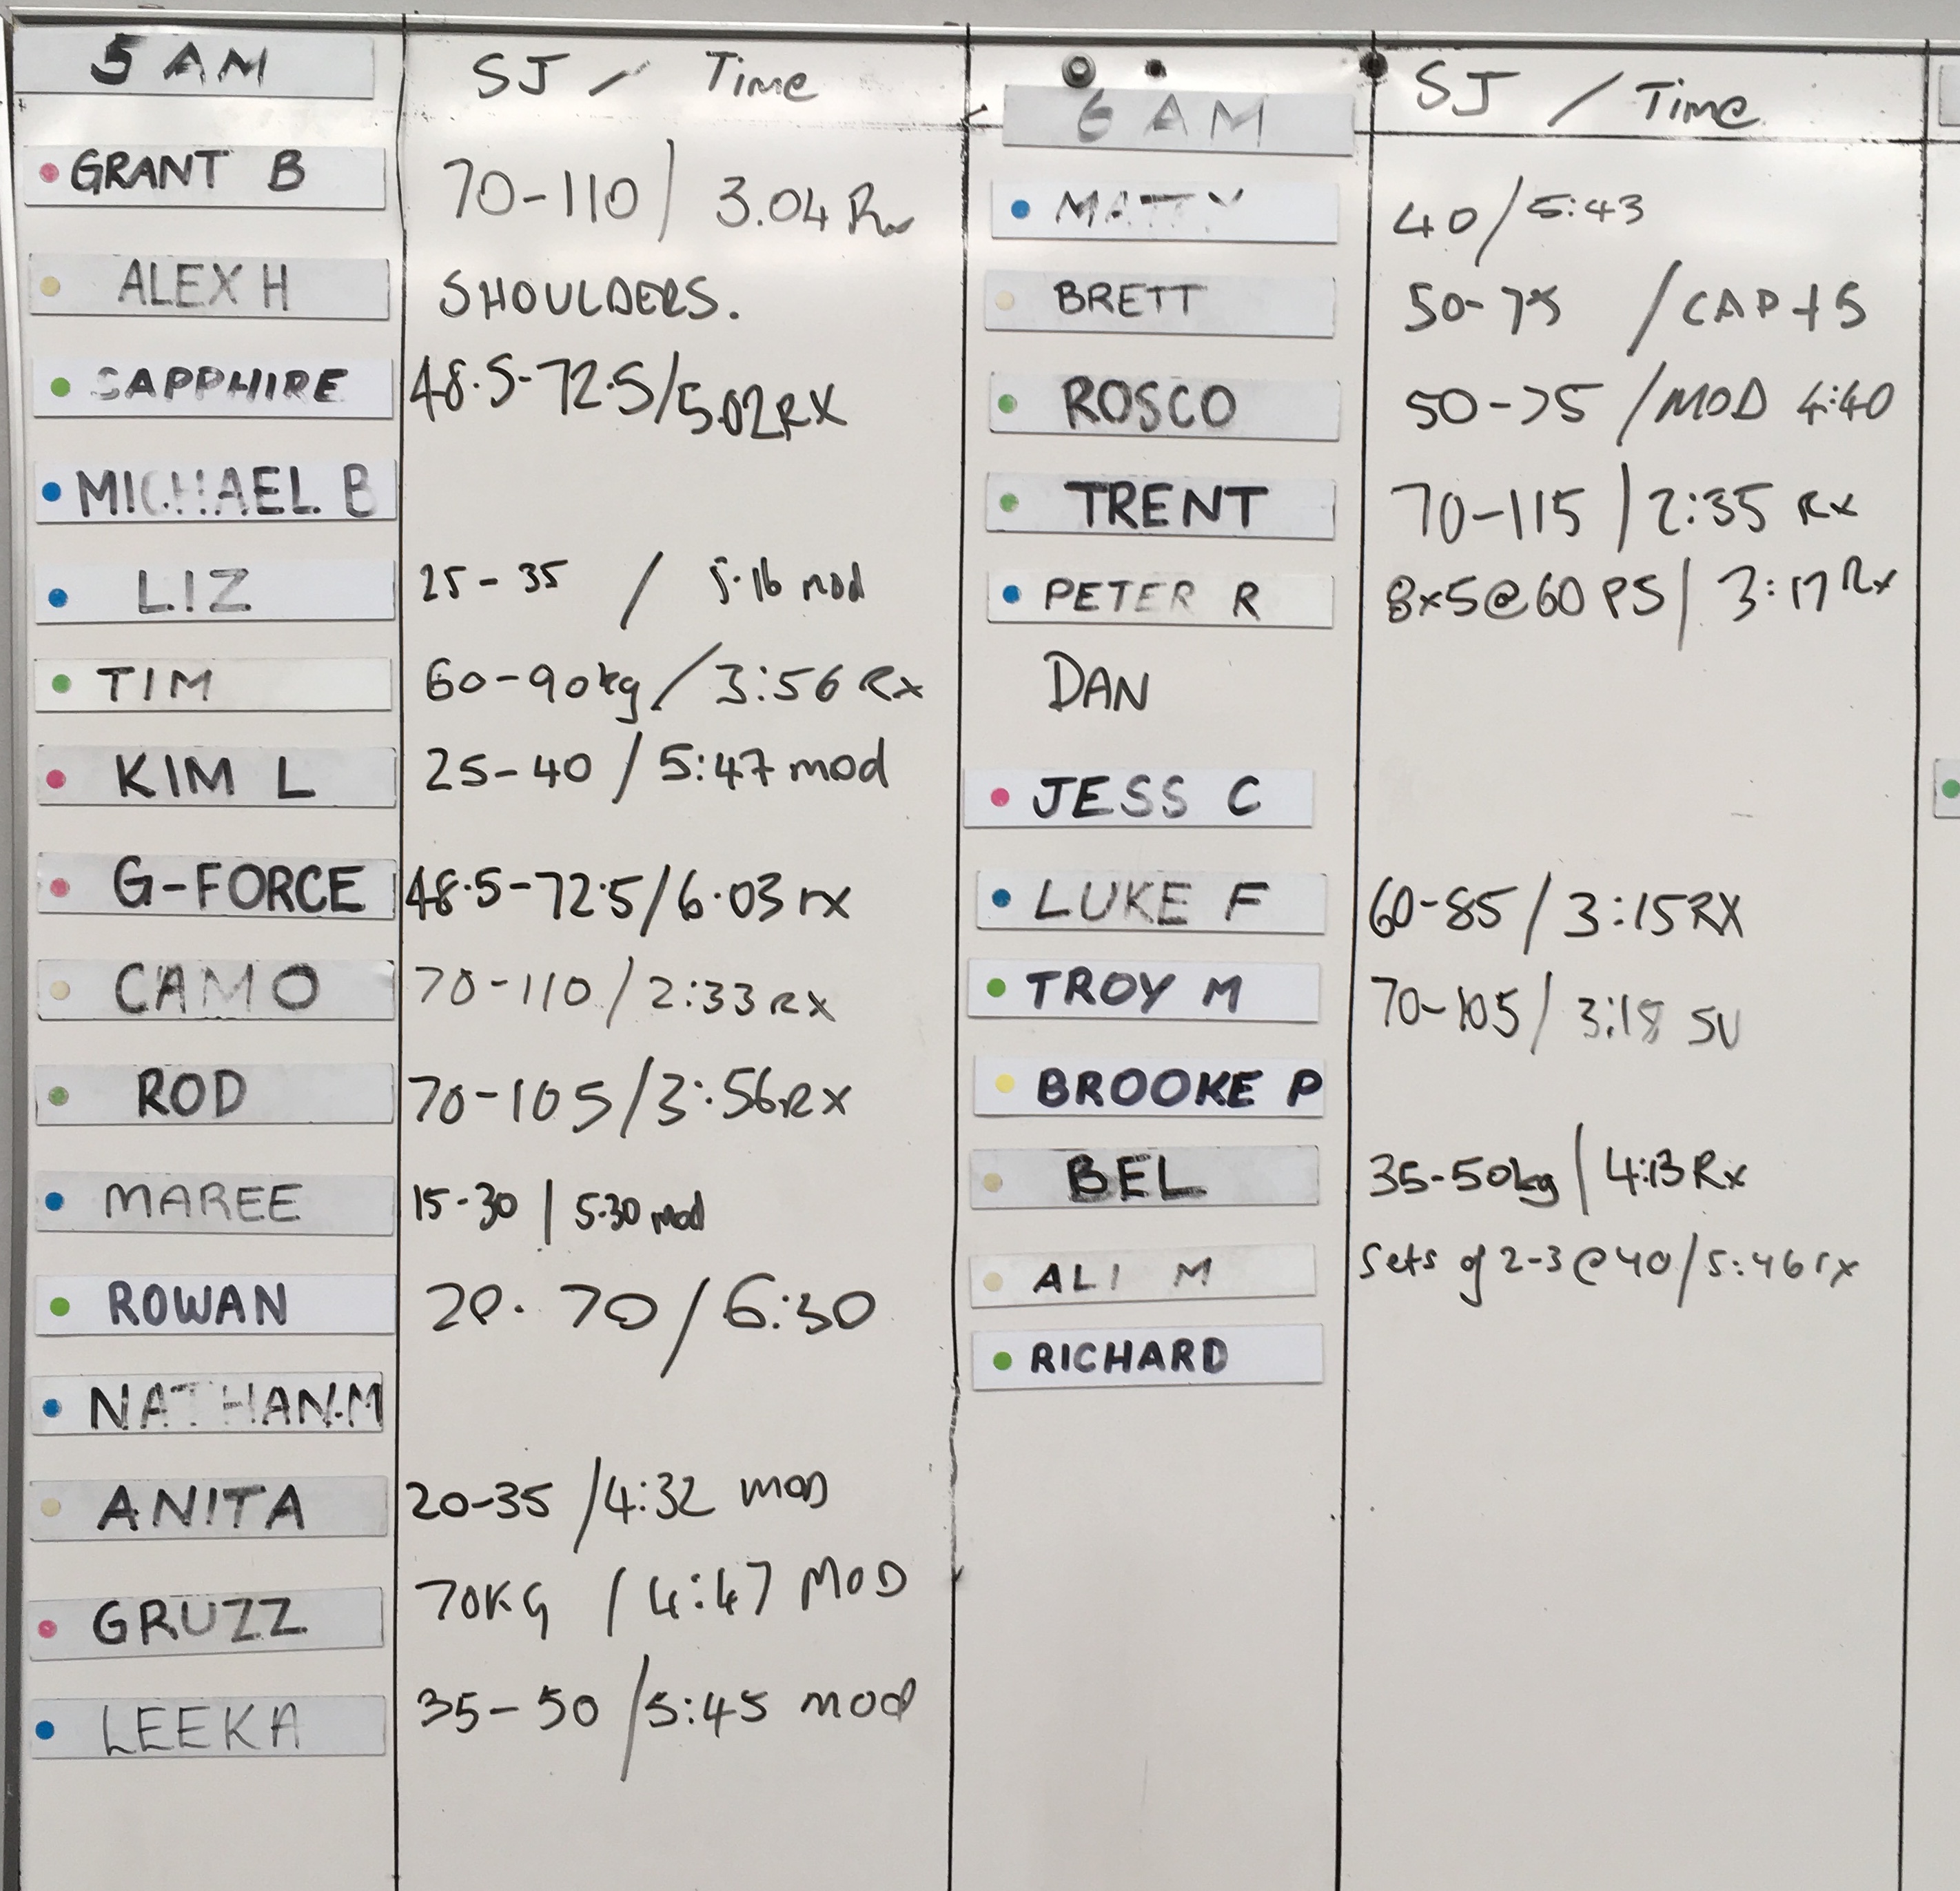 5 AM SJ / Time
GRANT B 70-110 / 3.04 Rx
ALEX H SHOULDERS.
SAPPHIRE 48.5-72.5/5.02 RX
MICHAEL B
LIZ 25-35 / 5.16 mod
TIM 60-90kg / 3:56 Rx
KIM L 25-40 / 5:47 mod
G-FORCE 48.5-72.5/6.03 rx
CAMO 70-110 / 2:33 RX
ROD 70-105/3:56 RX
MAREE 15-30 | 5.30 mod
ROWAN 20-70/6:30
NATHAN.M
ANITA 20-35 /4:32 MOD
GRUZZ 70KG / 4:47 MOD
LEEKA 35-50 /5:45 mod
6 AM SJ / Time
MATTY 40/5:43
BRETT 50-75 / CAP+5
ROSCO 50-75 / MOD 4:40
TRENT 70-115 / 2:35 Rx
PETER R 8x5@60 PS / 3:17 Rx
DAN
JESS C
LUKE F 60-85 / 3:15 RX
TROY M 70-105 / 3:18 SU
BROOKE P
BEL 35-50kg / 4:13 Rx
ALI M Sets of 2-3 @ 40 / 5:46 rx
RICHARD